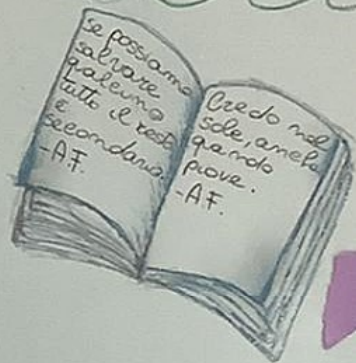 se possiamo
salvare
qualcuno
tutto il resto
è
secondario.
-A.F.
Credo nel
sole, anche
quando
piove.
-A.F.